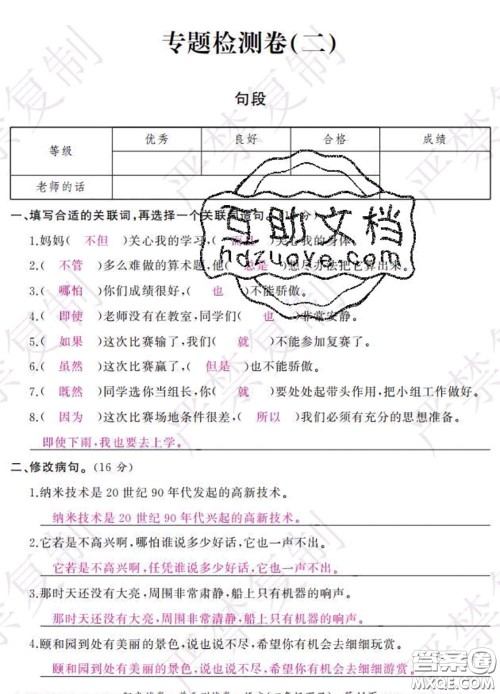 专题检测卷(二)
句段
等级 优秀 良好 合格 成绩
老师的话
一、填写合适的关联词,再选择一个关联词造句。(16分)
1.妈妈( 不但 )关心我的学习,( 而且 )关心我的身体。
2.( 不管 )多么难做的算术题,他( 总是 )想尽办法把它算出来。
3.( 哪怕 )你们成绩很好,( 也 )不能骄傲。
4.( 即使 )老师没有在教室,同学们( 也 )非常安静。
5.( 如果 )这次比赛输了,我们( 就 )不能参加复赛了。
6.( 虽然 )这次比赛赢了,( 但是 )也不能骄傲。
7.( 既然 )同学选你当组长,你( 就 )要处处起带头作用,把小组工作做好。
8.( 因为 )这次比赛场地条件很差,( 所以 )我们必须有充分的思想准备。
即使下雨,我也要去上学。
二、修改病句。(16 分)
1.纳米技术是 20 世纪 90 年代发起的高新技术。
纳米技术是 20 世纪 90 年代兴起的高新技术。
2.它若是不高兴啊,哪怕谁说多少好话,它也一声不出。
它若是不高兴啊,任凭谁说多少好话,它也一声不出。
3.那时天还没有大亮,周围非常肃静,船上只有机器的响声。
那时天还没有大亮,周围非常清静,船上只有机器的响声。
4.颐和园到处有美丽的景色,说也说不尽,希望你有机会去细细玩赏。
颐和园到处有美丽的景色,说也说不尽,希望你有机会去细细游赏。
严禁复制
自助文档
hdzuowe.com
答案圈
MXQE.COM